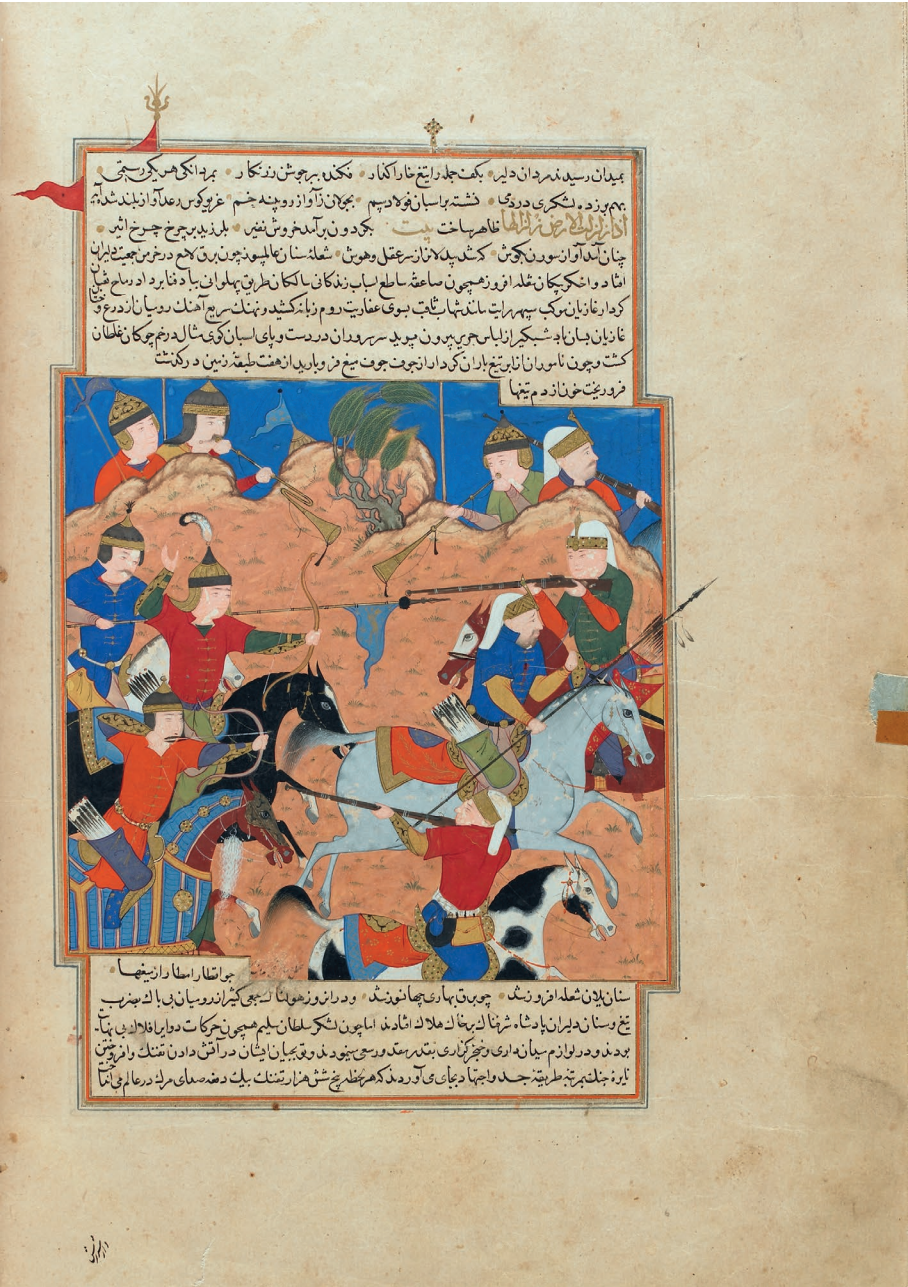 بمیدان رسیدند مردان دلیر • بکف جمله را تیغ خارا کذار • فکنده ببر جوشن زرنکار • بمردانکی هر یکی رستمی •
بهم بر زده لشکری در دمی • نشسته بر اسبان فولاد سم • بجولان ز آواز رویینه خم • غریو کوس رعد آواز بلند شد آیه
اذا زلزلت الارض زلزالها ظاهر ساخت بیت بکردون برآمد خروش نفیر • بلرزید بر چرخ چرخ اثیر •
چنان آمد آواز سورن بکوش • که شد پردلانرا ز سر عقل و هوش • شعلهٔ سنان عالمسوز چون برق لامع در خرمن جمعیت دلیران
افتاد و اخکر پیکان شعله افروز همچون صاعقهٔ ساطع اسباب زندکانی سالکان طریق پهلوانی بباد فنا برداد رماح
کردار غازیان موکب سپهر رایت مانند شهاب ثاقب بسوی عفاریت روم زبانه کشید و نهنك سریع آهنك روسیان از درع و
غازیان بسان باد شبکیر از لباس حریر بیرون پرید سر سروران در دست و پای اسبان کوی مثال در خم چوکان غلطان
کشت و چون ناموران را تیغ باران کردار از جوف جوف میغ فرو بارید از هفت طبقهٔ زمین درکذشت
فرو ریخت خون از دم تیغها •
چو اقطار امطار از میغها •
سنان یلان شعله افروز شد • چو برق بهاری جهانسوز شد • و در ان روز هولناك جمعی کثیر از رومیان بی باك بضرب
تیغ و سنان دلیران پادشاه شرزناك بر خاك هلاك افتادند اما چون لشکر سلطان سلیم همچون حرکات دوایر افلاك بی نهایت
بودند و در لوازم سپاهداری و خنجر کزاری بقدر مقدور سعی مینمودند و تفنکچیان ایشان در آتش دادن تفنك و افروختن
نایرهٔ جنك بمرتبه طریقهٔ جد و اجتهاد بجای می آوردند که هر لحظه پنج شش هزار تفنك بیك دفعه صدای مرك در عالم می